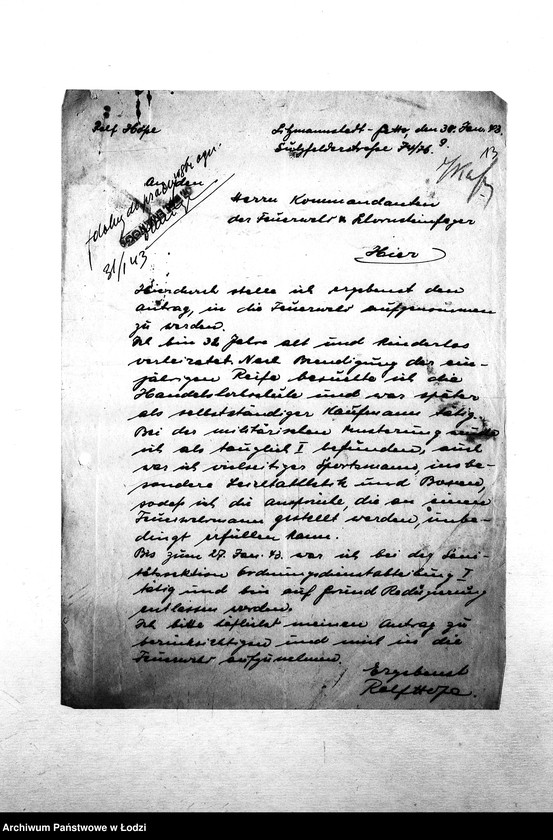 Rolf Hope
Litzmannstadt-Getto, den 30. Jan. 43.
Sulzfelderstraße 74/76
13
An den
Herrn Kommandanten
der Feuerwehr & Schornsteinfeger
31/I 43
Hier
Hierdurch stelle ich ergebenst den
Antrag, in die Feuerwehr aufgenommen
zu werden.
Ich bin 32 Jahre alt und kinderlos
verheiratet. Nach Beendigung der ein-
jährigen Reife besuchte ich die
Handelshochschule und war später
als selbstständiger Kaufmann tätig.
Bei der militärischen Musterung wurde
ich als tauglich I befunden, auch
war ich vielseitiger Sportsmann, insbe-
sondere Leichtathletik und Boxen,
sodaß ich die Ansprüche, die an einen
Feuerwehrmann gestellt werden, unbe-
dingt erfüllen kann.
Bis zum 27. Jan. 43. war ich bei der Sani-
tätssektion Ordnungsdienstabteilung I
tätig und bin auf Grund Reduzierung
entlassen worden.
Ich bitte höflichst meinen Antrag zu
berücksichtigen und mich in die
Feuerwehr aufzunehmen.
Ergebenst
Rolf Hope.
Archiwum Państwowe w Łodzi